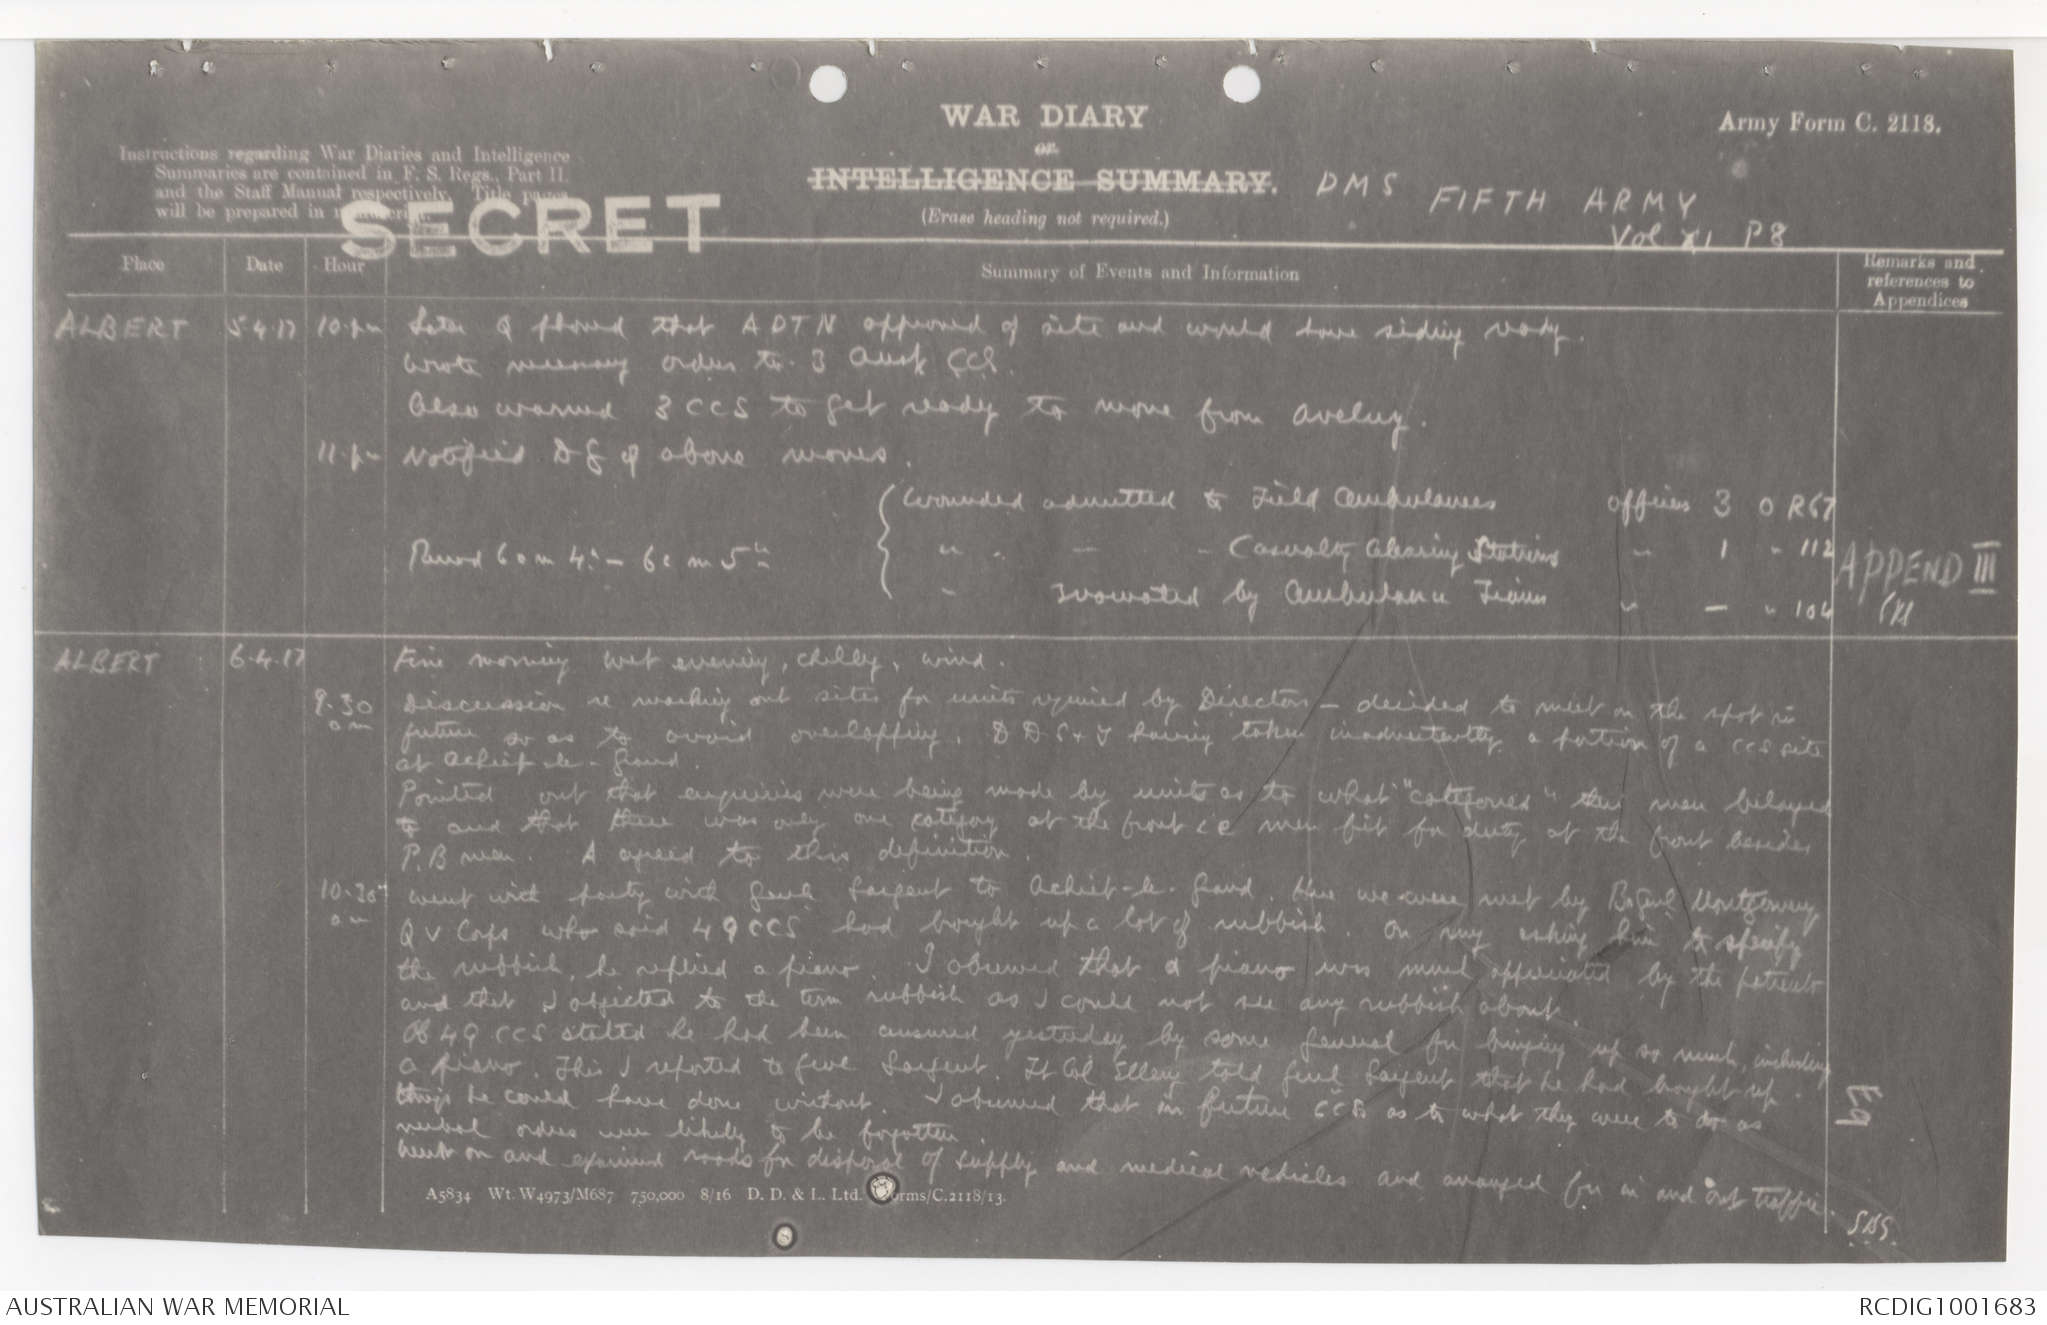 WAR DIARY
or
INTELLIGENCE SUMMARY.
(Erase heading not required.)
Army Form C. 2118.
Instructions regarding War Diaries and Intelligence
Summaries are contained in F. S. Regs., Part II.
and the Staff Manual respectively. Title pages
will be prepared in manuscript.
SECRET
DMS FIFTH ARMY
Vol XI P8
Place Date Hour Summary of Events and Information Remarks and references to Appendices
ALBERT 5.4.17 10.pm Later Q phoned that ADTN approved of site and would have siding ready.
Wrote necessary orders to 3 Aust CCS.
Also warned 3 CCS to get ready to move from Aveluy.
11.pm Notified DG of above moves.
Wounded admitted to Field Ambulances Officers 3 OR 67
Period 6 am 4th - 6 am 5th " " - " Casualty Clearing Stations " 1 " 112
" Evacuated by Ambulance Trains " - " 104
APPEND III
ALBERT 6.4.17 Fine morning wet evening, chilly, wind.
9.30 am Discussion re marking out sites for units required by Directors - decided to meet on the spot in
future so as to avoid overlapping. DDS&T having taken inadvertently a portion of a CCS site
at Achiet-le-Grand.
Pointed out that enquiries were being made by units as to what "categories" their men belonged
to and that there was only one category at the front i.e men fit for duty at the front besides
P.B men. A agreed to this definition.
10.30 am Went with party with Genl Sargent to Achiet-le-Grand. Here we were met by B Genl Montgomery
Q V Corps who said 49 CCS had brought up a lot of rubbish. On my asking him to specify
the rubbish, he replied a piano. I observed that a piano was much appreciated by the patients
and that I objected to the term rubbish as I could not see any rubbish about.
OC 49 CCS stated he had been censured yesterday by some General for bringing up so much, including
a piano. This I reported to Genl Sargent. Lt Col Ellery told Genl Sargent that he had brought up
things he could have done without. I observed that in future CCSs as to what they were to do as
verbal orders were likely to be forgotten.
Went on and examined roads for disposal of supply and medical vehicles and arranged for in and out traffic.
A5834 Wt. W4973/M687 750,000 8/16 D. D. & L. Ltd. Forms/C.2118/13.
AUSTRALIAN WAR MEMORIAL
RCDIG1001683